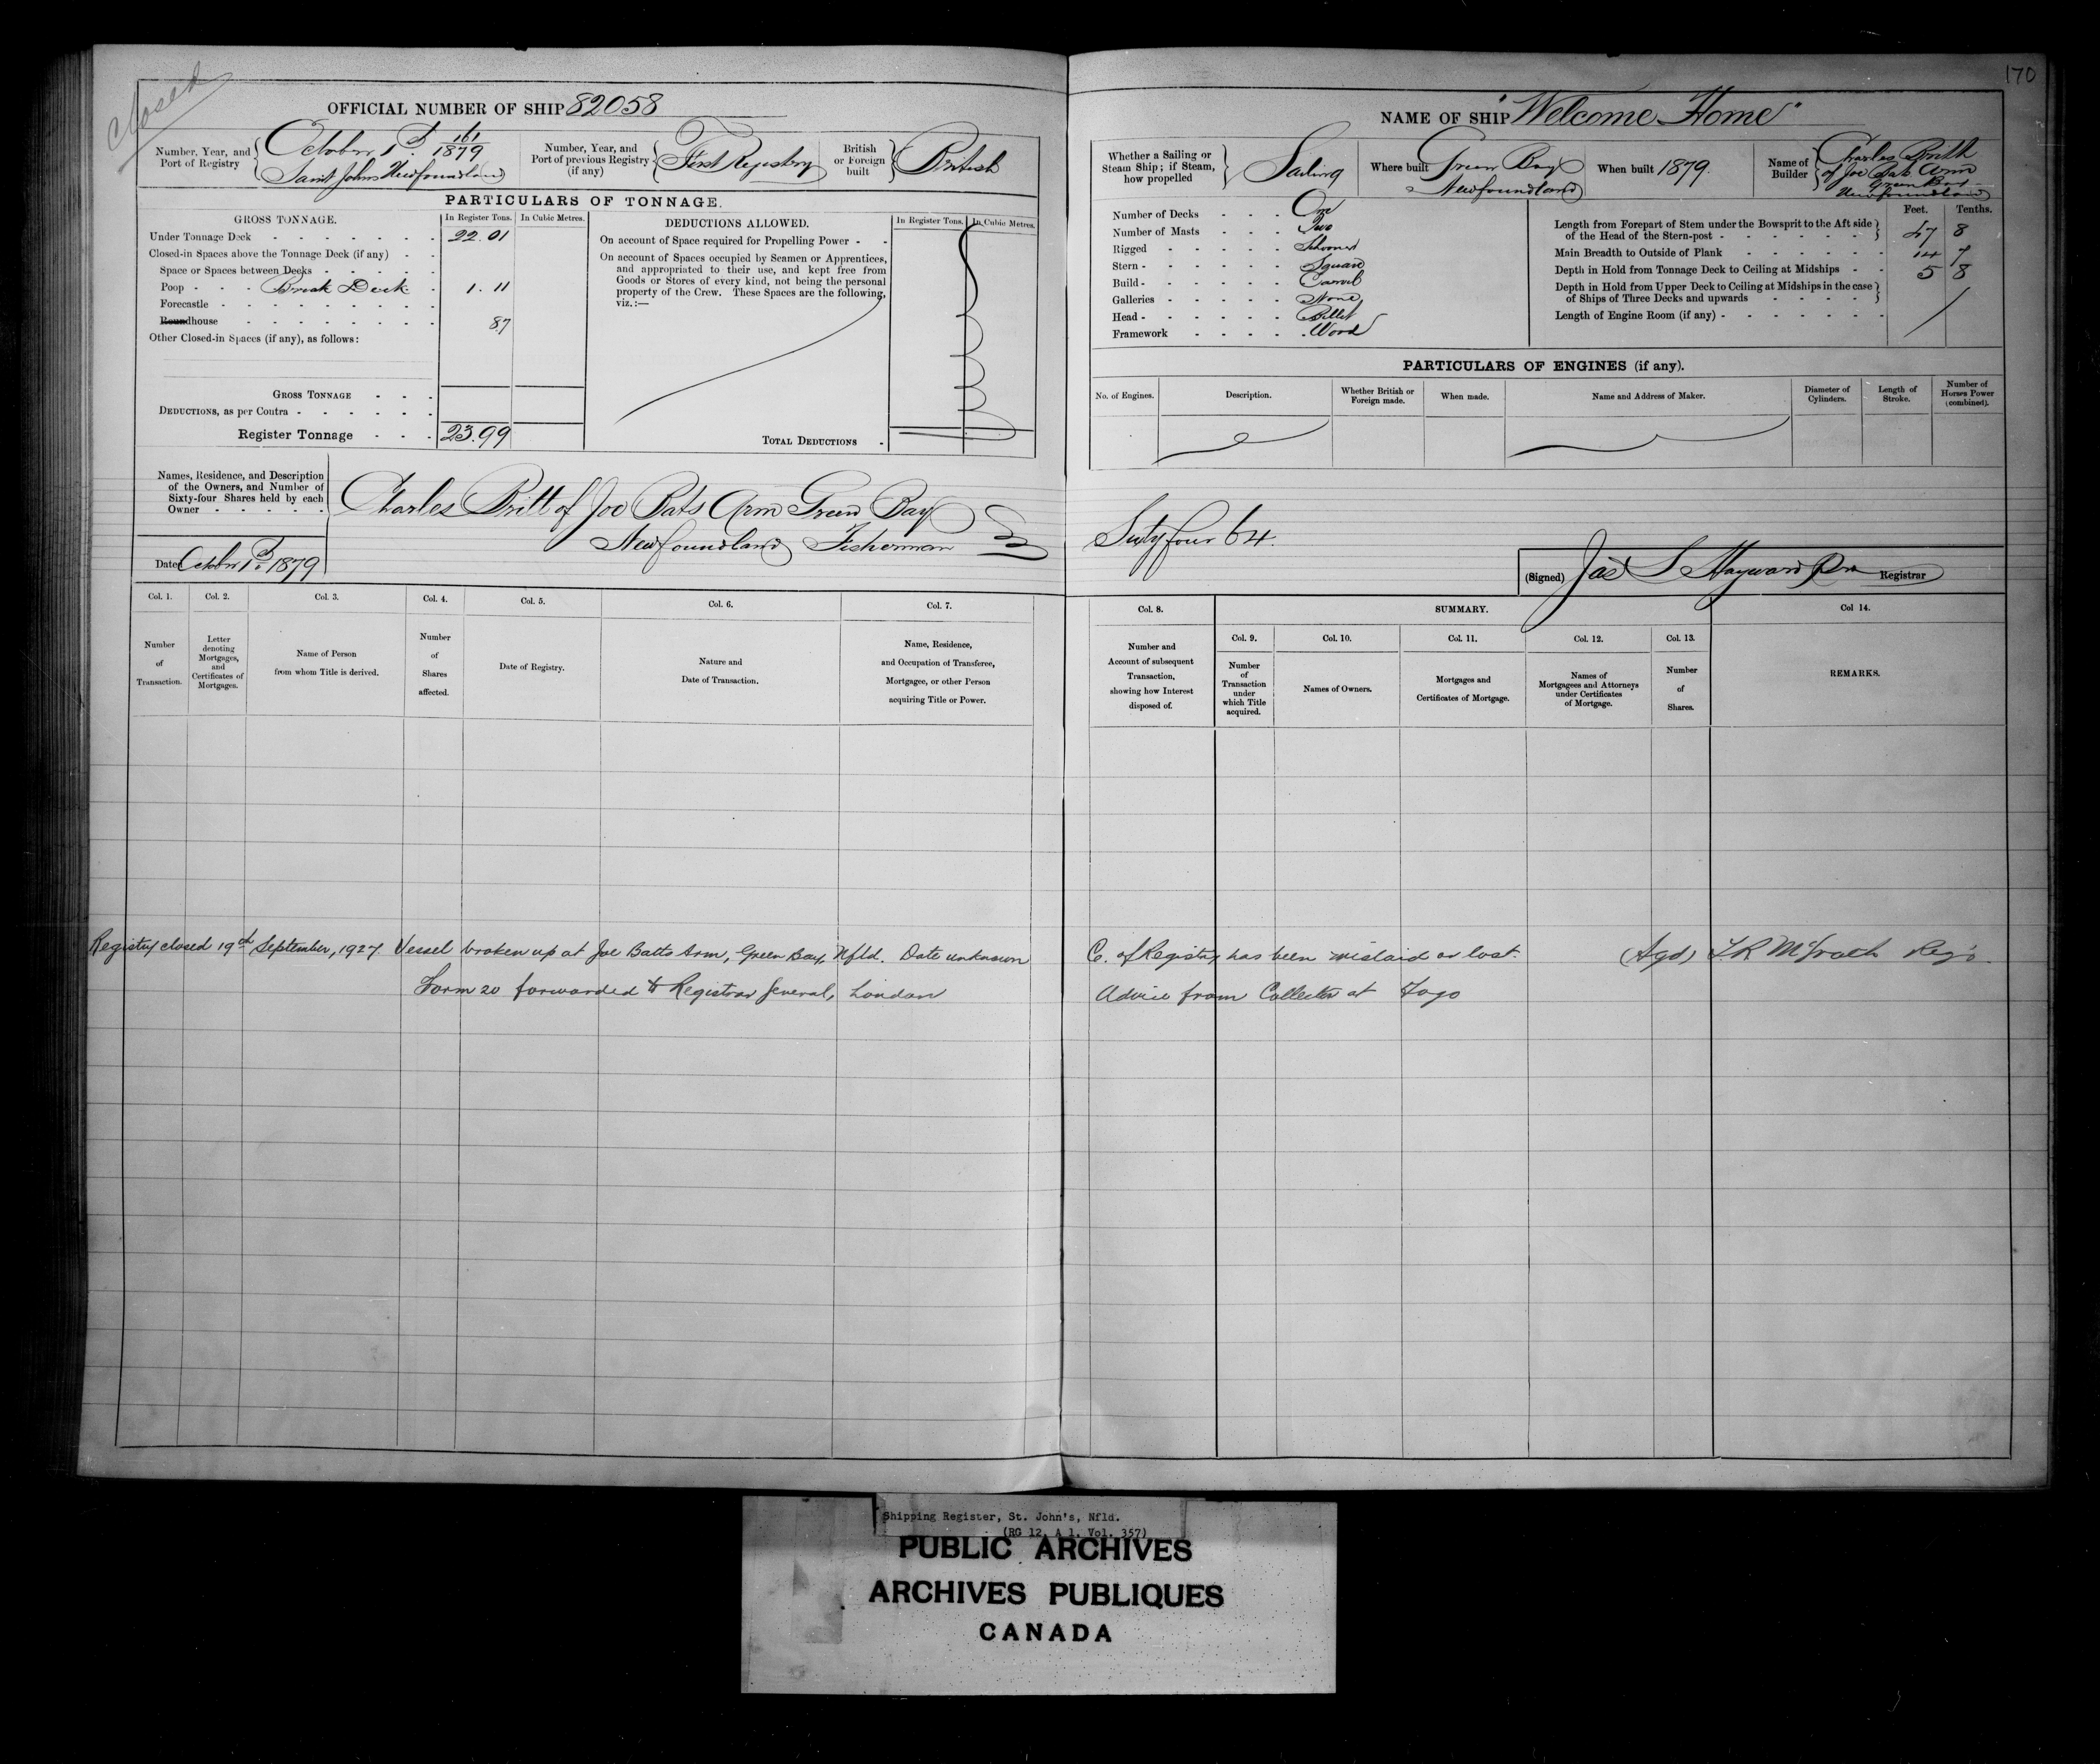 closed
170
OFFICIAL NUMBER OF SHIP 82058
NAME OF SHIP "Welcome Home"
Number, Year, and Port of Registry
October 1st 161/1879
Saint Johns Newfoundland
Number, Year, and Port of previous Registry (if any)
First Registry
British or Foreign built
British
Whether a Sailing or Steam Ship; if Steam, how propelled
Sailing
Where built Green Bay
Newfoundland
When built 1879.
Name of Builder
Charles
of Joe Arm
Green Bay
Newfoundland
PARTICULARS OF TONNAGE.
GROSS TONNAGE.
In Register Tons. In Cubic Metres.
Under Tonnage Deck 22.01
Closed-in Spaces above the Tonnage Deck (if any)
Space or Spaces between Decks
Poop Break Deck 1.11
Forecastle
Roundhouse 87
Other Closed-in Spaces (if any), as follows:
GROSS TONNAGE
DEDUCTIONS, as per Contra
Register Tonnage 23.99
DEDUCTIONS ALLOWED.
In Register Tons. In Cubic Metres.
On account of Space required for Propelling Power
On account of Spaces occupied by Seamen or Apprentices,
and appropriated to their use, and kept free from
Goods or Stores of every kind, not being the personal
property of the Crew. These Spaces are the following,
viz.:—
TOTAL DEDUCTIONS
Number of Decks One
Number of Masts Two
Rigged Schooner
Stern Square
Build Carvel
Galleries None
Head Billet
Framework Wood
Feet. Tenths.
Length from Forepart of Stem under the Bowsprit to the Aft side
of the Head of the Stern-post 47 8
Main Breadth to Outside of Plank 14 7
Depth in Hold from Tonnage Deck to Ceiling at Midships 5 8
Depth in Hold from Upper Deck to Ceiling at Midships in the case
of Ships of Three Decks and upwards
Length of Engine Room (if any)
PARTICULARS OF ENGINES (if any).
No. of Engines. Description. Whether British or Foreign made. When made. Name and Address of Maker. Diameter of Cylinders. Length of Stroke. Number of Horses Power (combined).
Names, Residence, and Description
of the Owners, and Number of
Sixty-four Shares held by each
Owner
Charles Britt of Joe Bats Arm Green Bay
Newfoundland Fisherman
Sixty four 64.
Date October 1st 1879
(Signed) Jas S Hayward Registrar
Col. 1. Col. 2. Col. 3. Col. 4. Col. 5. Col. 6. Col. 7.
Number of Transaction.
Letter denoting Mortgages, and Certificates of Mortgages.
Name of Person from whom Title is derived.
Number of Shares affected.
Date of Registry.
Nature and Date of Transaction.
Name, Residence, and Occupation of Transferee, Mortgagee, or other Person acquiring Title or Power.
Col. 8. SUMMARY. Col 14.
Col. 9. Col. 10. Col. 11. Col. 12. Col. 13.
Number and Account of subsequent Transaction, showing how Interest disposed of.
Number of Transaction under which Title acquired.
Names of Owners.
Mortgages and Certificates of Mortgage.
Names of Mortgagees and Attorneys under Certificates of Mortgage.
Number of Shares.
REMARKS.
Registry closed 19th September, 1927. Vessel broken up at Joe Batts Arm, Green Bay, Nfld. Date unknown
C. of Registry has been mislaid or lost. (Sgd) T.R McGrath Regr.
Form 20 forwarded to Registrar General, London
Advice from Collector at Fogo
Shipping Register, St. John's, Nfld.
(RG 12, A 1, Vol. 357)
PUBLIC ARCHIVES
ARCHIVES PUBLIQUES
CANADA